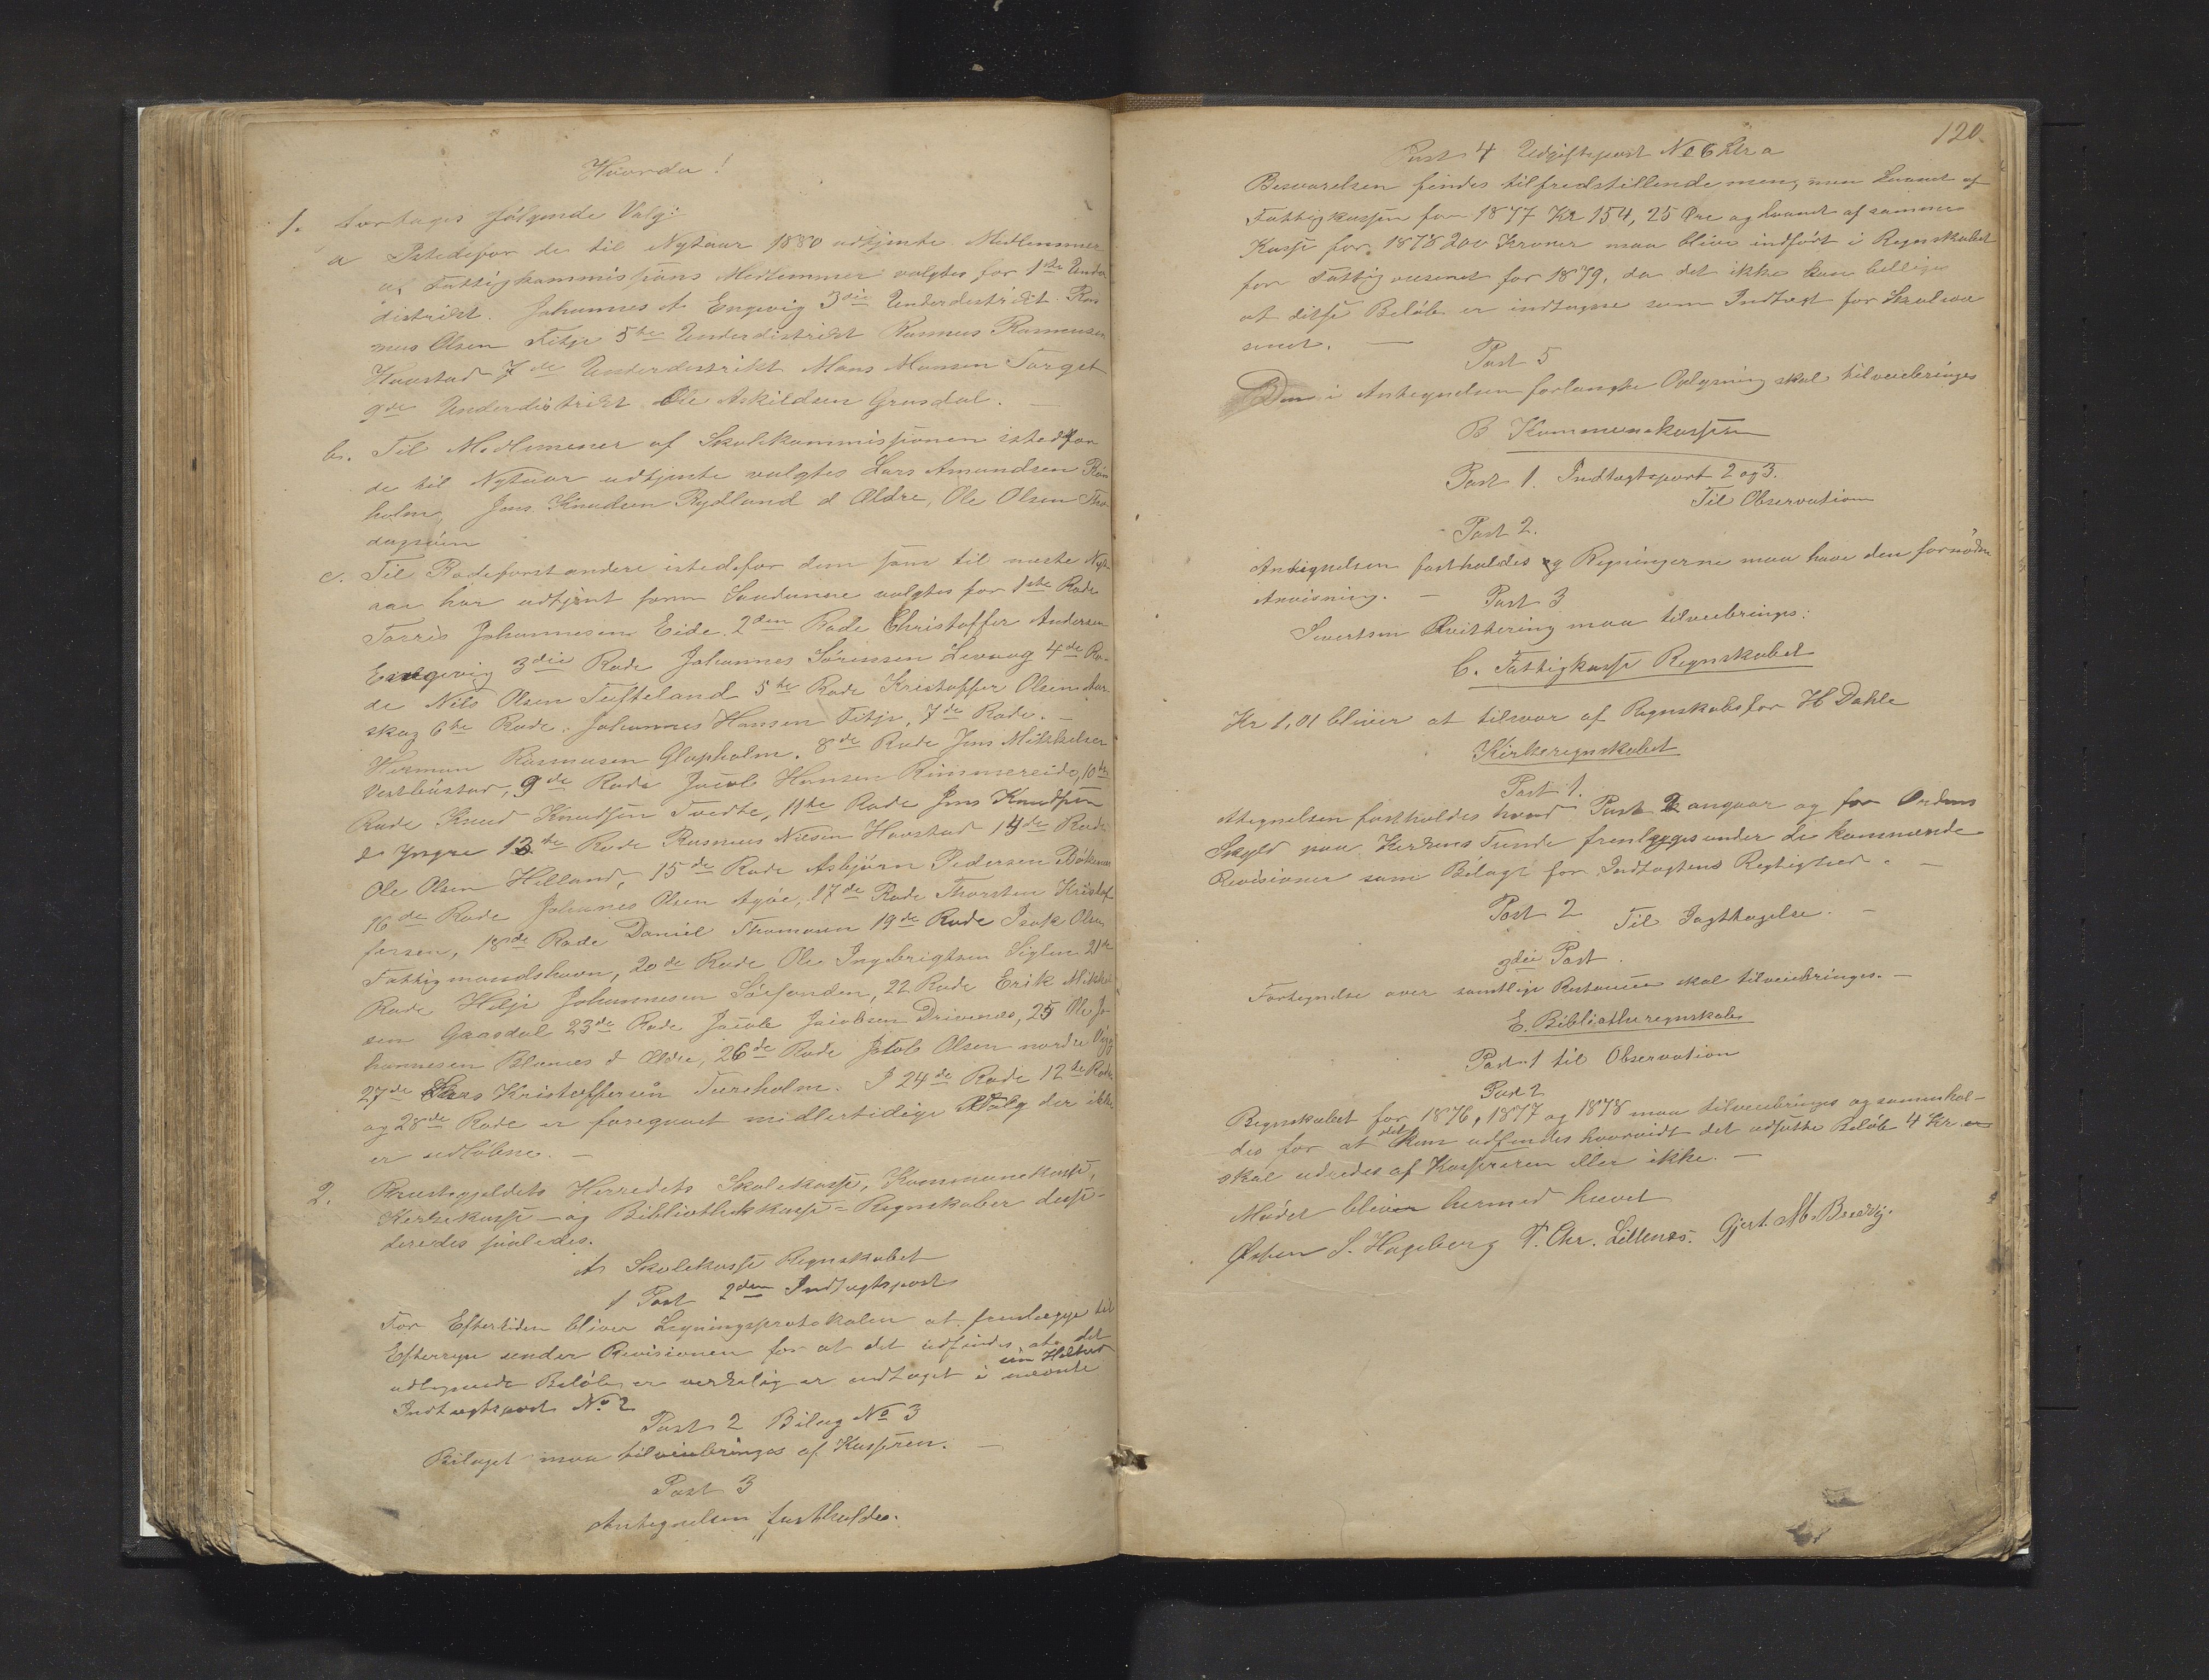 Hvorda!
1. Foretages følgende Valg:
a Istedefor de til Nytaar 1880 udtjente Medlemmer
af Fattigkommissjons Medlemmer valgtes for 1ste Under
distrikt. Johannes A. Engevig 3die Underdistrikt Ras
mus Olsen Fitje 5te Underdistrikt Rasmus Rasmusen
Haavstad 7de Underdistrikt Mons Monsen Torget
9de Underdistrikt Ole Askildsen Grasdal. —
b. Til Medlemmer af Skolekommissjonen istedfor
de til Nytaar udtjente valgtes Lars Amundsen
holm, Jens Knudsen Rydland d Ældre, Ole Olsen
c. Til Rodeforstandere istedefor dem som til næste Nyt
aar har udtjent som Saadanne valgtes for 1ste Rode
Torris Johannesen Eide. 2den Rode Christoffer Andersen
Engevig 3die Rode Johannes Sørensen Levaag 4de Ro-
de Nils Olsen Tufteland 5te Rode Kristoffer Olsen Aar-
skog 6te Rode. Johannes Hansen Fitje, 7de Rode. —
Herman Rasmusen Glapholm. 8de Rode Jens Mikkelsen
Vestbøstad, 9de Rode Jacob Hansen Rimmereide, 10de
Rode Knud Knudsen Tvedte, 11te Rode Jens Knudsen
d Yngre 13de Rode Rasmus Nilsen Haavstad 14de Rode
Ole Olsen Helland, 15de Rode Asbjørn Pedersen
16de Rode Johanes Olsen Agøe, 17de Rode Thorsten Kristof
fersen, 18de Rode Daniel Thomasen 19de Rode Isak Olsen
Fattigmandshavn, 20de Rode Ole Ingebrigtsen Siglen 21de
Rode Helje Johannesen Sørfonden, 22 Rode Erik Mikkel
sen Gaasdal 23de Rode Jacob Jacobsen Drivenes, 25 Ole Jo
hannesen Blænes d Ældre, 26de Rode Jakob Olsen nordre
27de Lars Kristoffersen Tereholm. I 24de Rode 12te Rode
og 28de Rode er foregaaet midlertidige Valg der ikke
er udløbne. —
2. Præstegjeldets Herredets Skolekasse, Kommunekasse,
Kirkekasse- og Bibliothekkasse-Regnskaber desi-
deredes saaledes.
A Skolekasse Regnskabet
1 Post 2den Indtægtspost
For Eftertiden bliver Ligningsprotokolen at fremlægge til
Eftersyn under Revisionen for at det udfindes at det
udlignede Beløb er verkelig er indtaget i sin Helhed nævnte
Indtægtspost No 2
Post 2 Bilag No 3
Bilaget maa tilveiebringes af Kassreren. —
Post 3
Antegnelsen fastholdes.
120.
Post 4 Udgiftspost No 6 Ltr a
Besvarelsen findes tilfredstillende men, men Laanet af
Fattigkassen for 1877 Kr 154, 25 Øre og Laanet af samme
Kasse for 1878 200 Kroner maa blive indført i Regnskabet
for Fattigvæsenet for 1879, da det ikke kan billiges
at disse Beløb er indtagne som Indtægt for Skolevæ
senet. —
Post 5
Den i Antegnelsen forlangte Oplysning skal tilveiebringes
B Kommunekassen
Post 1. Indtægtspost 2 og 3.
Til Observation
Post 2.
Antegnelsen fastholdes og Regningerne maa have den fornødne
Anvisning. —
Post 3
Sivertsen Kvittering maa tilveiebringes:
C. Fattigkasse Regnskabet
Kr 1,01 bliver at tilsvar af Regnskabsfør H Dahle
Kirkeregnskabet
Post 1.
Ategnelsen fastholdes hvad Post 2 angaar og for Ordens
Skyld maa Kirkens Tiende fremlægges under de kommende
Revisioner som Bilage for Indtægtens Rigtighed. —
Post 2 Til Iagttagelse. —
3die Post.
Fortegnelse over samtlige Restancer skal tilveiebringes. —
E. Bibliothekregnskabet
Post 1 til Observation
Post 2
Regnskabet for 1876, 1877 og 1878 maa tilveiebringes og sammenhol-
des for at det kan udfindes hvorvidt det udsatte Beløb 4 Kr er
skal udredes af Kassereren eller ikke. —
Mødet bliver hermed hævet
Østen S. Hageberg T. Chr. Lillenes. Gjert. M. Bredvig.